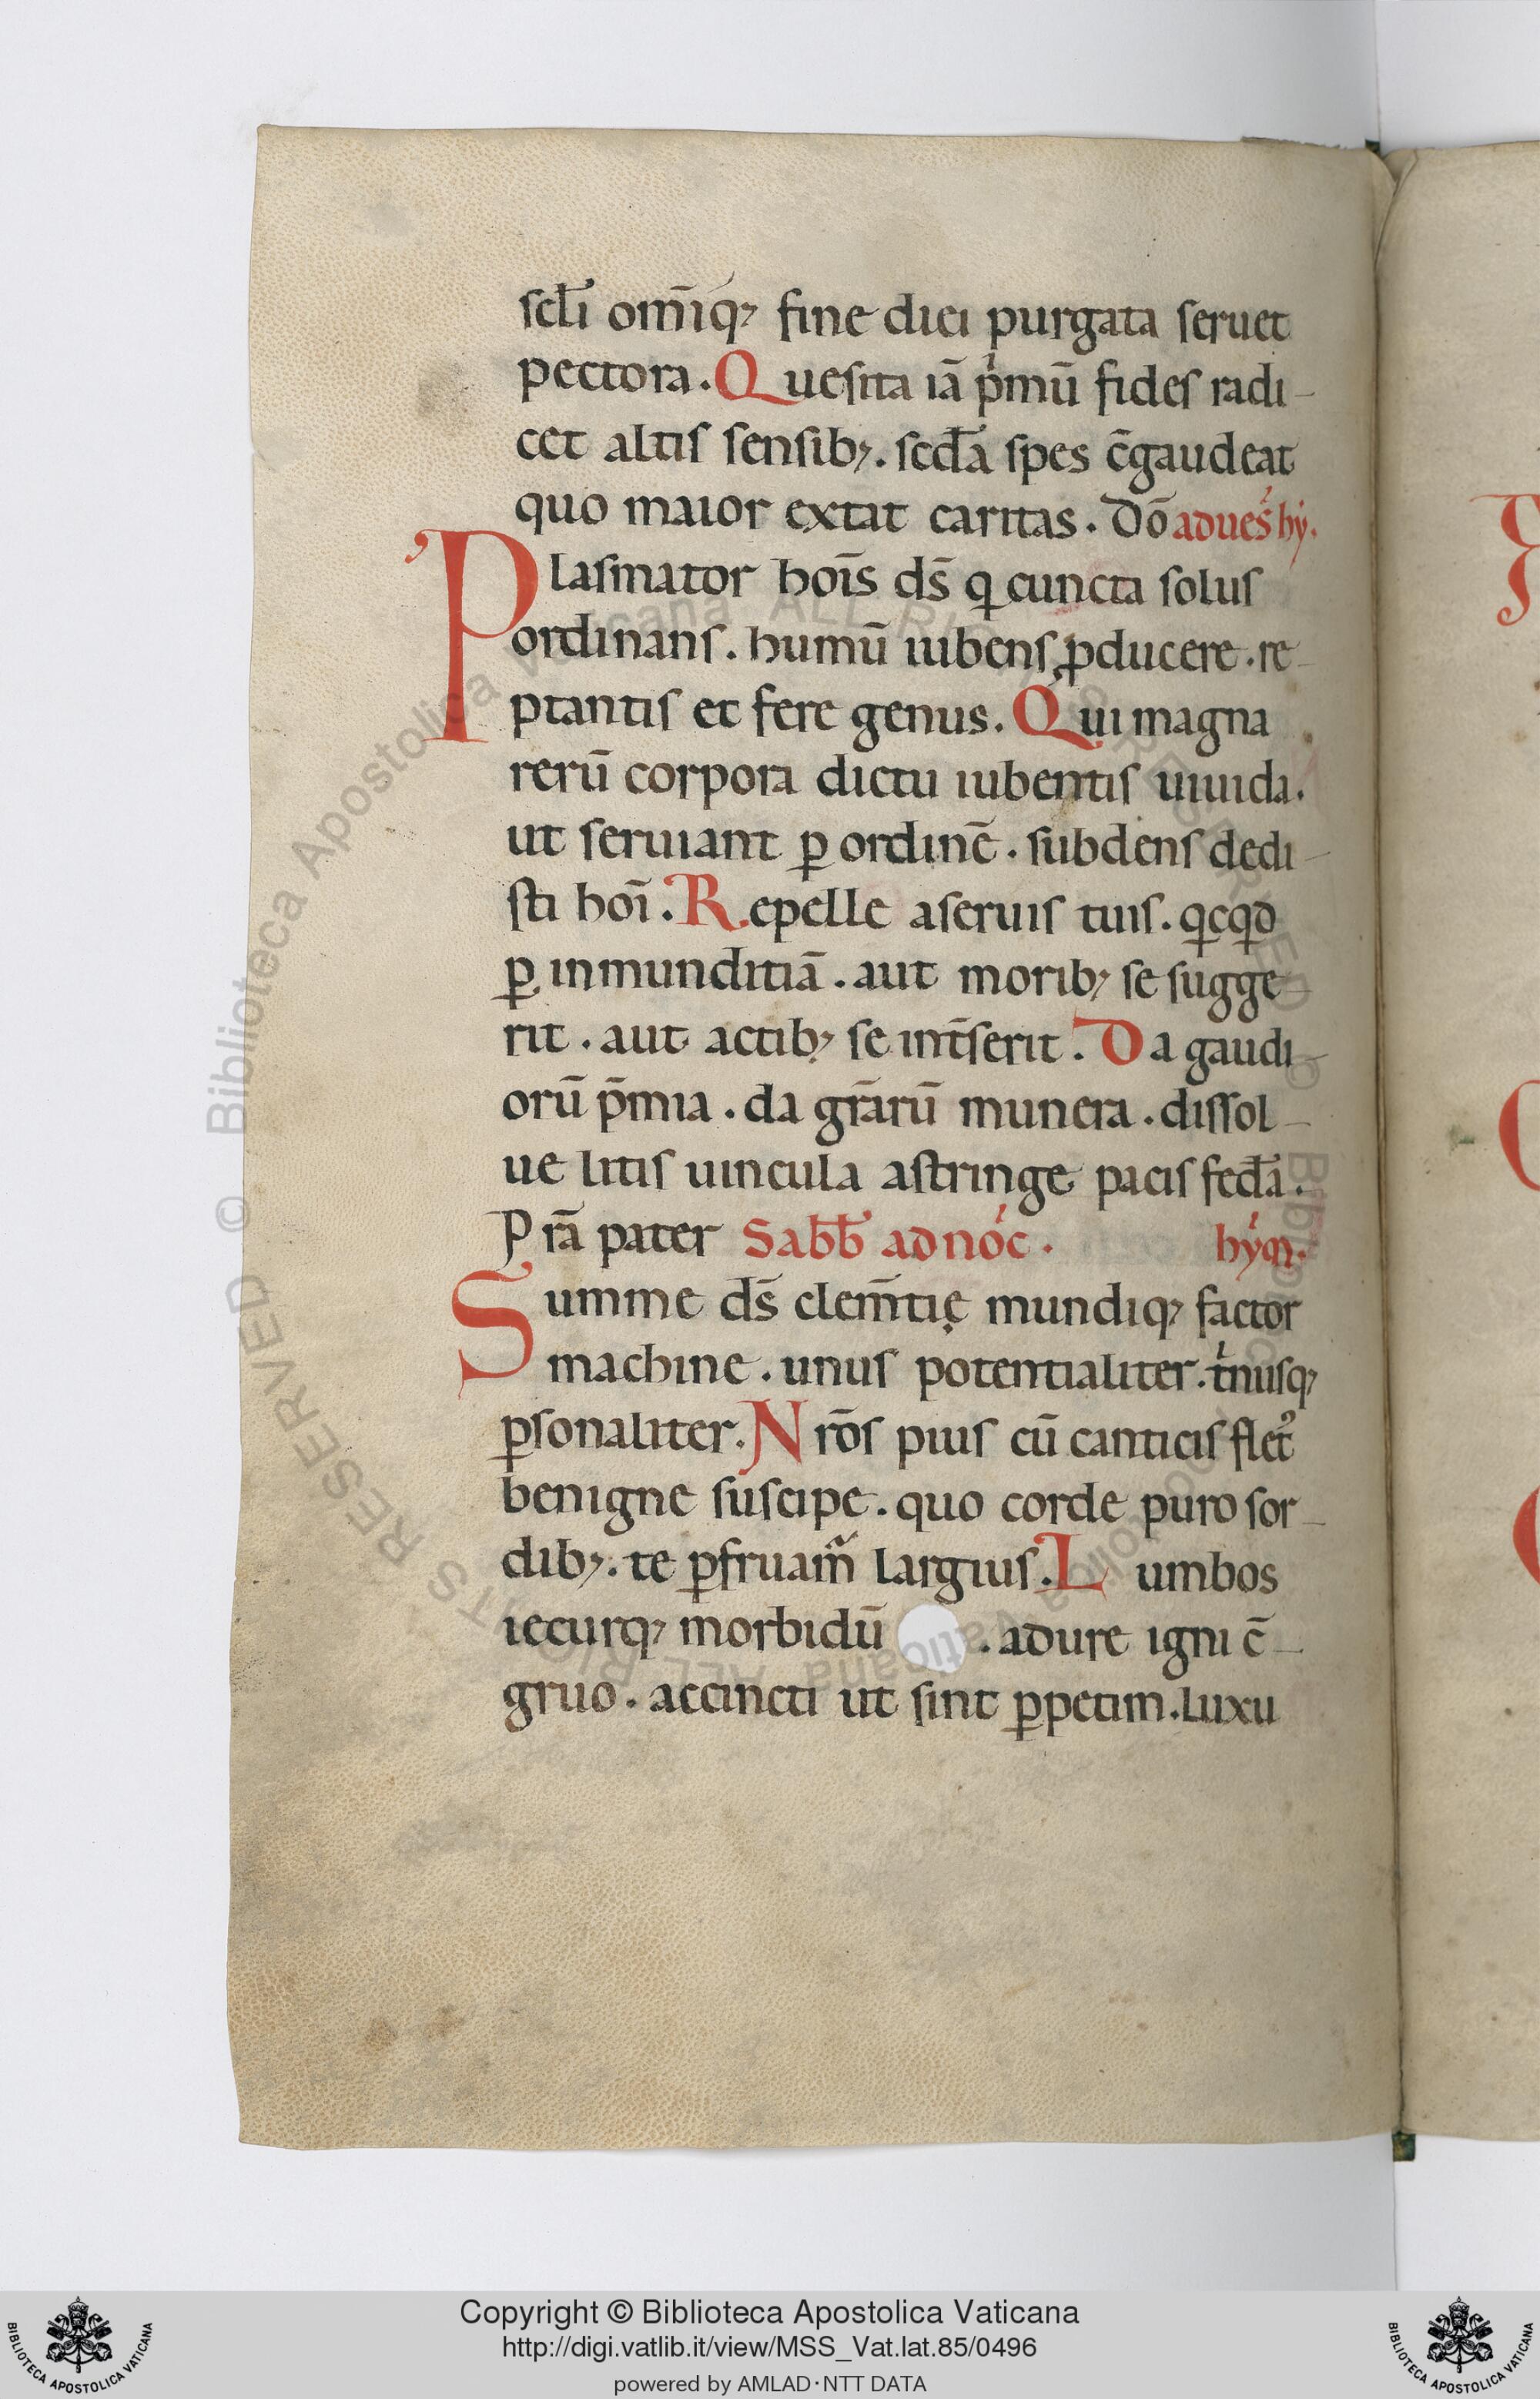 scl̅i om̅iq; fine diei purgata seruet
pectora. Quesita ia̅ pͥmu̅ fides radi-
cet altis sensib;. scd̅a spes c̅gaudeat
quo maior extat caritas. Do̅ adues̾ hẏ.
Plasmator hoi̅s ds̅ q cuncta solus
ordinans. humu̅ iubens ꝓducere. re-
ptantis et fere genus. Qui magna
reru̅ corpora dictu iubentis uiuida.
ut seruiant ꝑ ordine̅. subdens dedi-
sti hoi̅. Repelle aseruis tuis. qcqd
ꝑ inmunditia̅. aut morib; se sugge-
rit. aut actib; se int̅serit. Da gaudi-
oru̅ p̅mia. da gr̅aru̅ munera. dissol-
ue litis uincula astringe pacis fed̅a.
Pra̅ pater Sabb̅ adnoc̾. hẏm̾.
Summe ds̅ clem̅tię mundiq; factor
machine. unus potentialiter. tͥnusq;
ꝑsonaliter. Nro̅s pius cu̅ canticis flet᷒
benigne suscipe. quo corde puro sor-
dib;. te ꝑfruam᷒ largius. Lumbos
iecurq; morbidu̅ . adure igni c̅-
gruo. accincti ut sint ꝑpetim. luxu
© Biblioteca Apostolica Vaticana ALL RIGHTS RESERVED
Copyright © Biblioteca Apostolica Vaticana
http://digi.vatlib.it/view/MSS_Vat.lat.85/0496
powered by AMLAD·NTT DATA
BIBLIOTECA APOSTOLICA VATICANA
BIBLIOTECA APOSTOLICA VATICANA